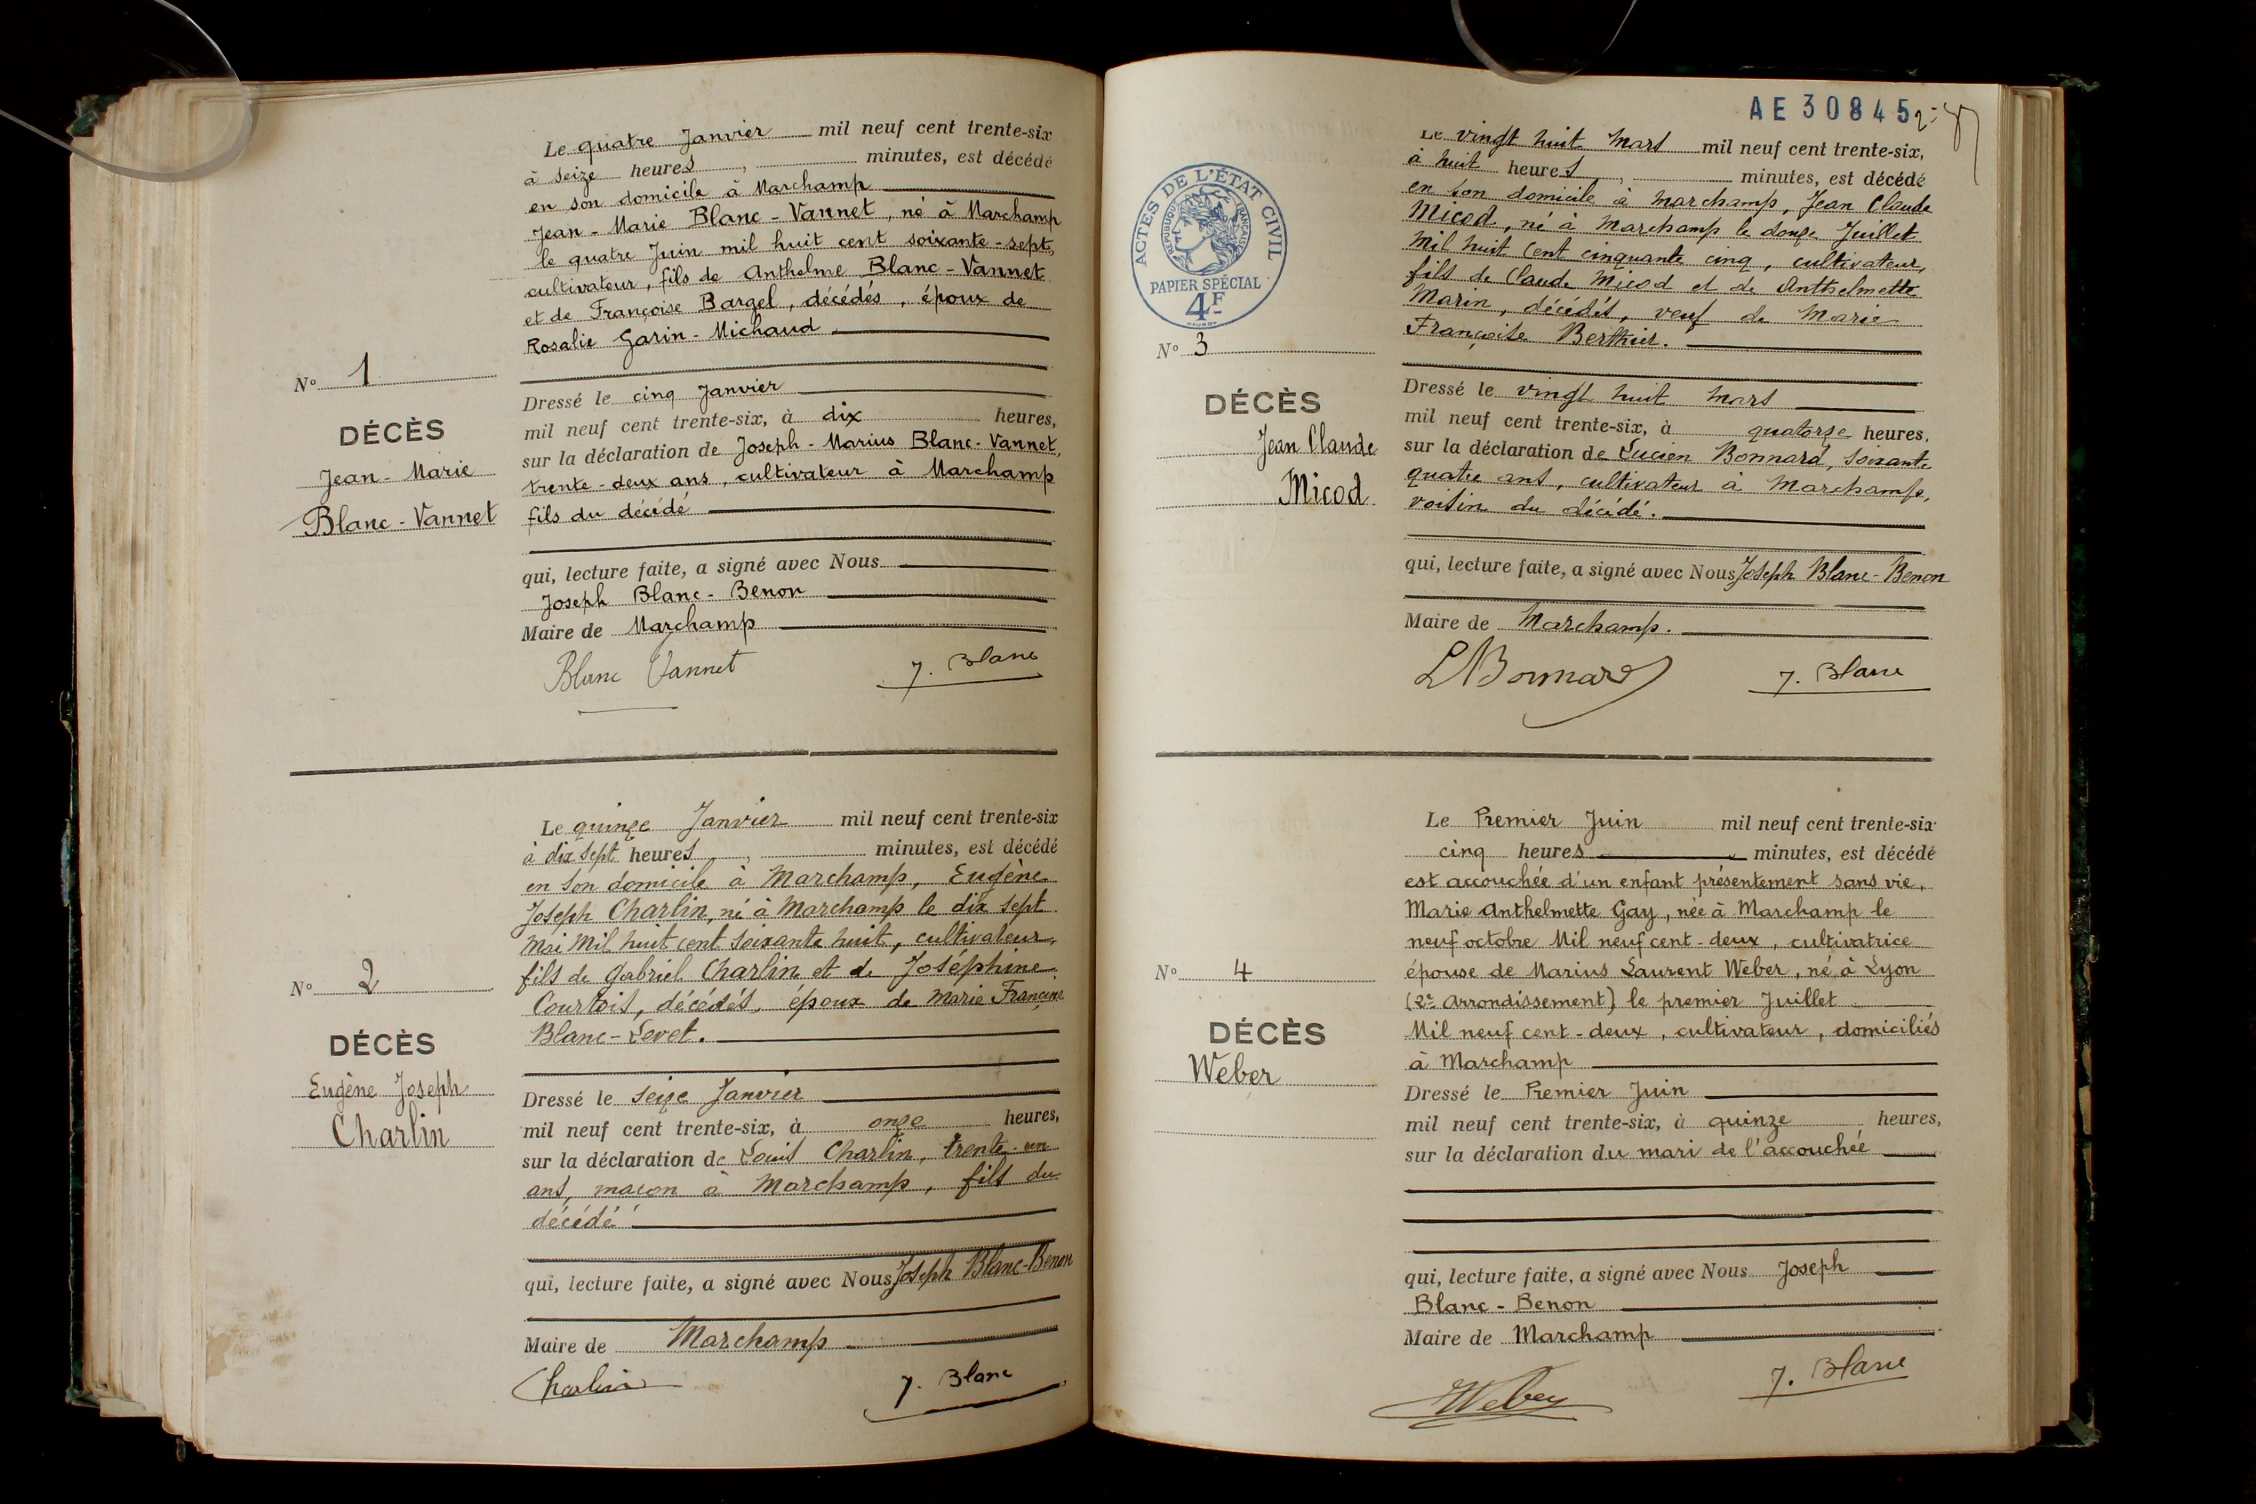 Le quatre Janvier mil neuf cent trente-six
à seize heures, minutes, est décédé
en son domicile à Marchamp
Jean-Marie Blanc-Vannet, né à Marchamp
le quatre Juin mil huit cent soixante-sept,
cultivateur, fils de Anthelme Blanc-Vannet
et de Françoise Bargel, décédés, époux de
Rosalie Garin-Michaud
N° 1
DÉCÈS
Jean-Marie
Blanc-Vannet
Dressé le cinq Janvier
mil neuf cent trente-six, à dix heures,
sur la déclaration de Joseph-Marius Blanc-Vannet,
trente-deux ans, cultivateur à Marchamp
fils du décédé
qui, lecture faite, a signé avec Nous
Joseph Blanc-Benon
Maire de Marchamp
Blanc Vannet J. Blanc
Le quinze Janvier mil neuf cent trente-six
à dix sept heures, minutes, est décédé
en son domicile à Marchamp, Eugène
Joseph Charlin, né à Marchamp le dix sept
Mai Mil huit cent soixante huit, cultivateur,
fils de Gabriel Charlin et de Joséphine
Courtois, décédés, époux de Marie Françoise
Blanc-Levet.
N° 2
DÉCÈS
Eugène Joseph
Charlin
Dressé le seize Janvier
mil neuf cent trente-six, à onze heures,
sur la déclaration de Louis Charlin, trente-un
ans, maçon à Marchamp, fils du
décédé
qui, lecture faite, a signé avec Nous Joseph Blanc-Benon
Maire de Marchamp
Charlin J. Blanc
AE30845
Le vingt huit Mars mil neuf cent trente-six,
à huit heures, minutes, est décédé
en son domicile à Marchamp, Jean Claude
Micod, né à Marchamp le douze Juillet
Mil huit Cent cinquante cinq, cultivateur,
fils de Claude Micod et de Anthelmette
Marin, décédés, veuf de Marie
Françoise Berthier.
ACTES DE L'ÉTAT CIVIL
RÉPUBLIQUE FRANÇAISE
PAPIER SPÉCIAL
4F
N° 3
DÉCÈS
Jean Claude
Micod
Dressé le vingt huit Mars
mil neuf cent trente-six, à quatorze heures,
sur la déclaration de Lucien Bonnard, soixante
quatre ans, cultivateur à Marchamp,
voisin du décédé.
qui, lecture faite, a signé avec Nous Joseph Blanc-Benon
Maire de Marchamp.
L Bonnard J. Blanc
Le Premier Juin mil neuf cent trente-six
cinq heures minutes, est décédé
est accouchée d'un enfant présentement sans vie,
Marie Anthelmette Gay, née à Marchamp le
neuf octobre Mil neuf cent-deux, cultivatrice
épouse de Marius Laurent Weber, né à Lyon
(2e Arrondissement) le premier Juillet
Mil neuf cent-deux, cultivateur, domiciliés
à Marchamp
N° 4
DÉCÈS
Weber
Dressé le Premier Juin
mil neuf cent trente-six, à quinze heures,
sur la déclaration du mari de l'accouchée
qui, lecture faite, a signé avec Nous Joseph
Blanc-Benon
Maire de Marchamp
Weber J. Blanc